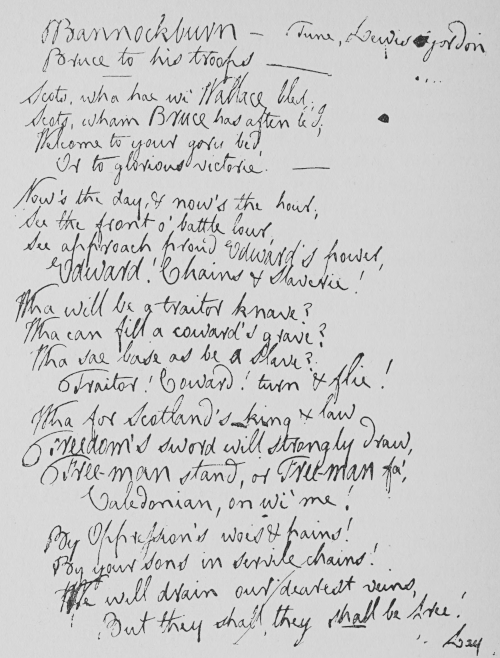 Bannockburn — Tune, Lewis Gordon
Bruce to his troops —
Scots, wha hae wi' Wallace bled,
Scots, wham Bruce has aften led,
Welcome to your gory bed,
Or to glorious victorie. —
Now's the day, & now's the hour;
See the front o' battle lour,
See approach proud Edward's power,
Edward! Chains & Slaverie!
Wha will be a traitor knave?
Wha can fill a coward's grave?
Wha sae base as be a slave?
Traitor! Coward! turn & flie!
Wha for Scotland's king & law
Freedom's sword will strongly draw,
Free-man stand, or Free-man fa',
Caledonian, on wi' me!
By Oppression's woes & pains!
By your sons in servile chains!
We will drain our dearest veins,
But they shall, they shall be free!
Lay